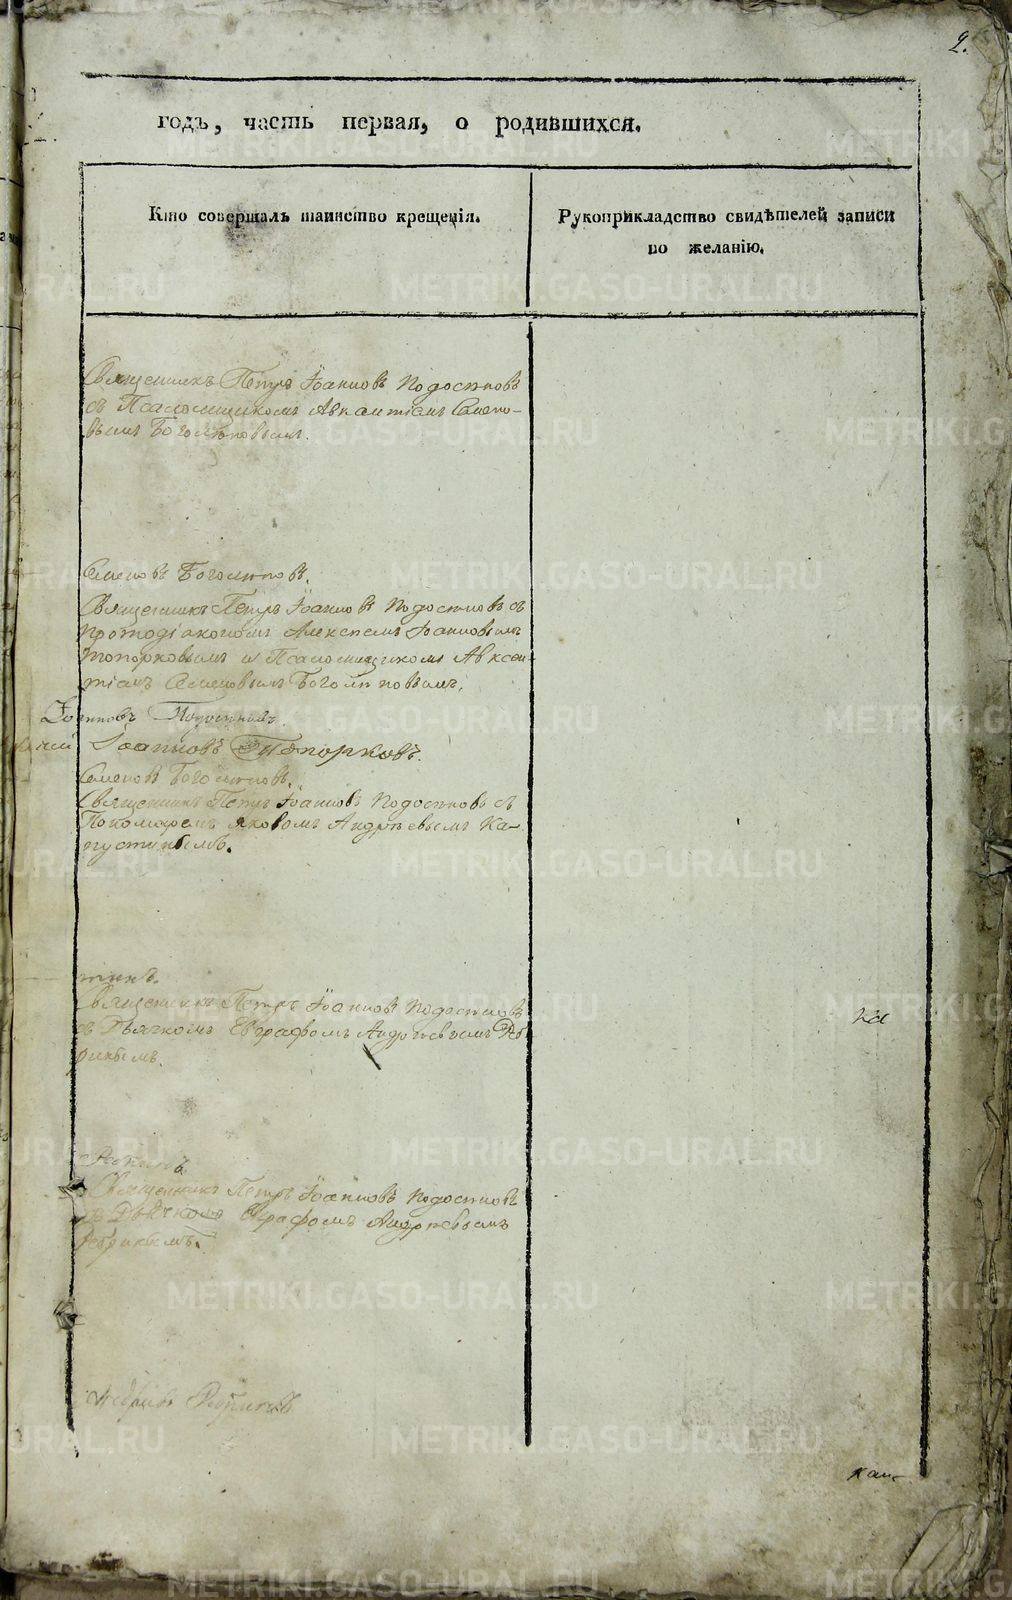 2.
годъ, часть первая, о родившихся.
Кто совершалъ таинство крещенія.
Рукоприкладство свидѣтелей записи
по желанію.
Священникъ Петръ Іоанновъ Подосеновъ
съ Псаломщикомъ Авксентіемъ Семено-
вымъ Боголѣповымъ.
Семеновъ Боголѣповъ.
Священникъ Петръ Іоанновъ Подосеновъ съ
протодіакономъ Алексѣемъ Іоанновымъ
Топорковымъ и Псаломщикомъ Авксен-
тіемъ Семеновымъ Боголѣповымъ.
Іоанновъ
Іоанновъ Топорковъ.
Семеновъ Боголѣповъ.
Священникъ Петръ Іоанновъ Подосеновъ съ
Пономаремъ Яковомъ Андрѣевымъ Ка-
пустинымъ.
Священникъ Петръ Іоанновъ Подосеновъ
съ Дьячкомъ Евграфомъ Андрѣевымъ
Ка
Священникъ Петръ Іоанновъ Подосеновъ
съ Дьячкомъ Евграфомъ Андрѣевымъ
METRIKI.GASO-URAL.RU